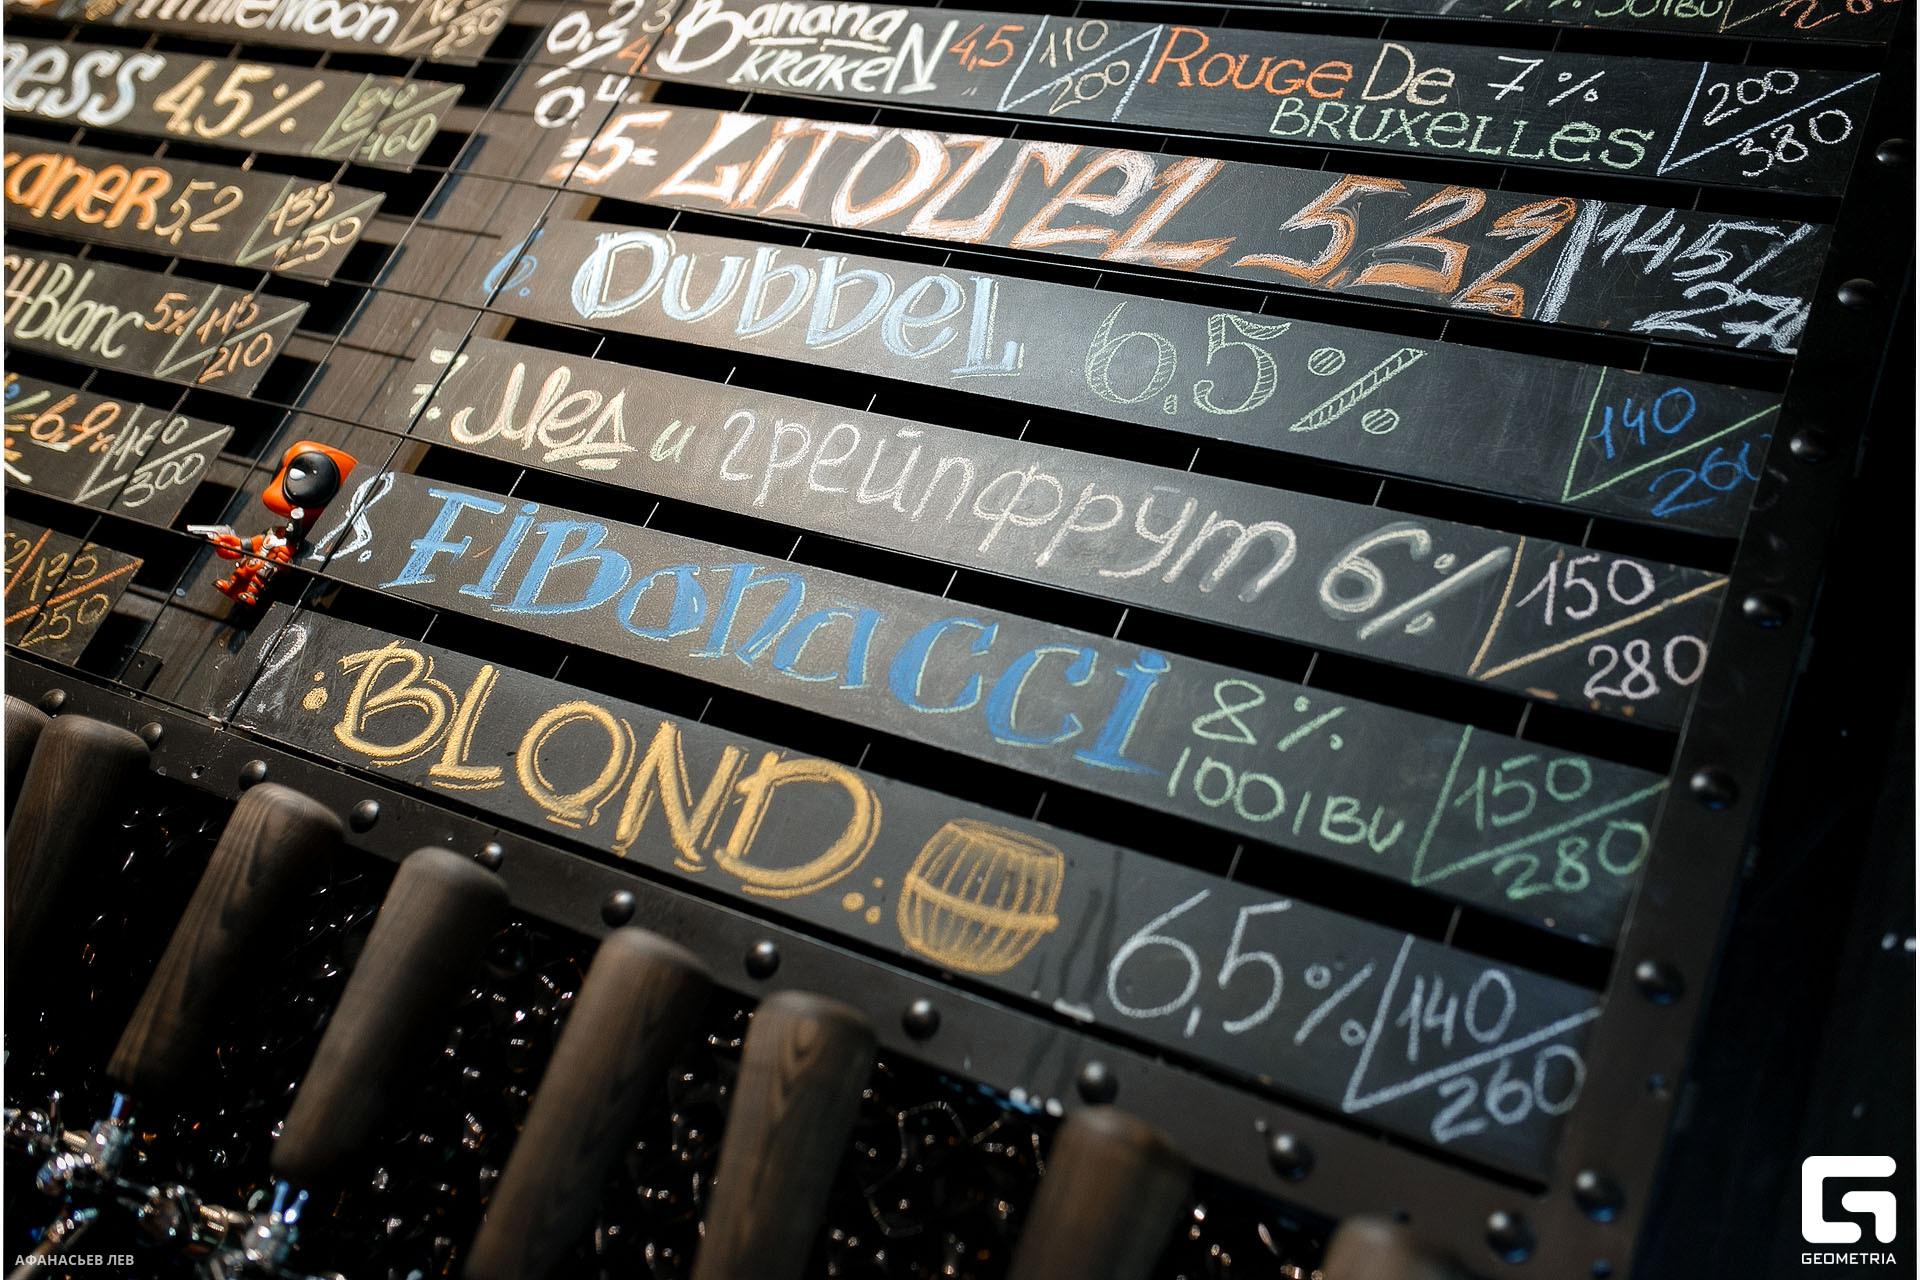 WhiteMoon
230
ness 4,5% 160
kaner 5,2 135
250
Blanc 5% 115
210
6,9% 160
300
135
250
0,3
0,4
Banana
kraken 4,5 110
200
Rouge De 7%
Bruxelles 200
380
5 Zitovel 5,2% 145
270
6. Dubbel 6,5% 140
260
7. Мед и грейпфрут 6% 150
280
8. Fibonacci 8%
100 IBU 150
280
9 Blond 6,5% 140
260
АФАНАСЬЕВ ЛЕВ
GEOMETRIA